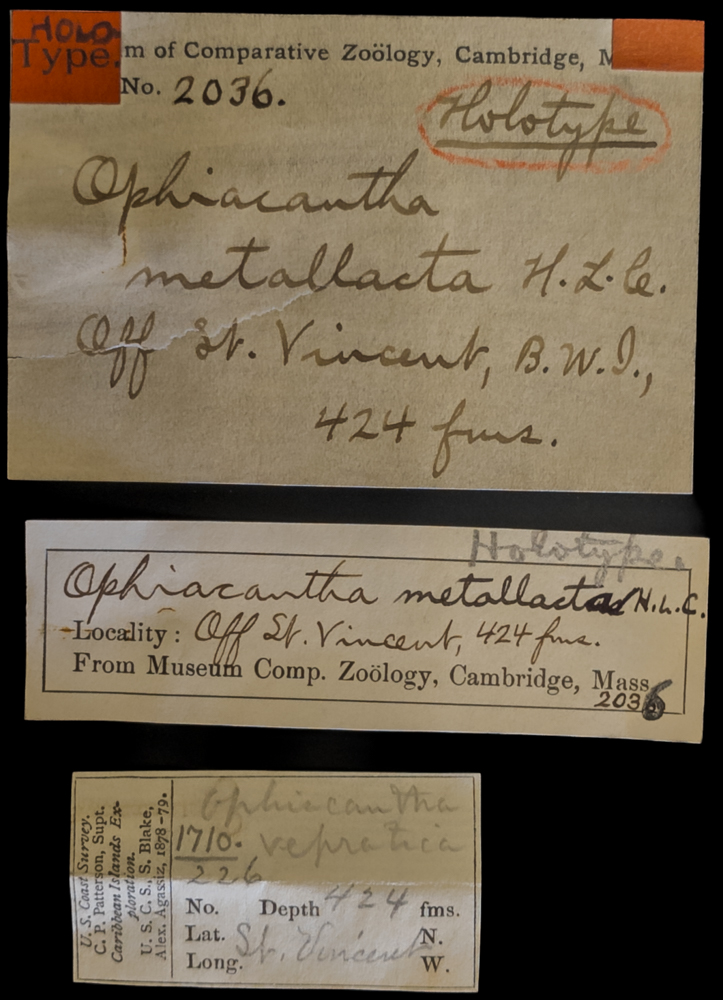 HOLO-
Type.
m of Comparative Zoölogy, Cambridge, M
No. 2036.
Holotype
Ophiacantha
metallacta H.L.C.
Off St. Vincent, B.W.I.,
424 fms.
Holotype.
Ophiacantha metallacta H.L.C.
Locality: Off St. Vincent, 424 fms.
From Museum Comp. Zoölogy, Cambridge, Mass.
2036
U. S. Coast Survey.
C. P. Patterson, Supt.
Caribbean Islands Ex-
ploration.
U. S. C. S. S. Blake,
Alex. Agassiz, 1878-79.
Ophiacantha
1710. vepratica
226
No. Depth 424 fms.
Lat. N.
St. Vincent
Long. W.